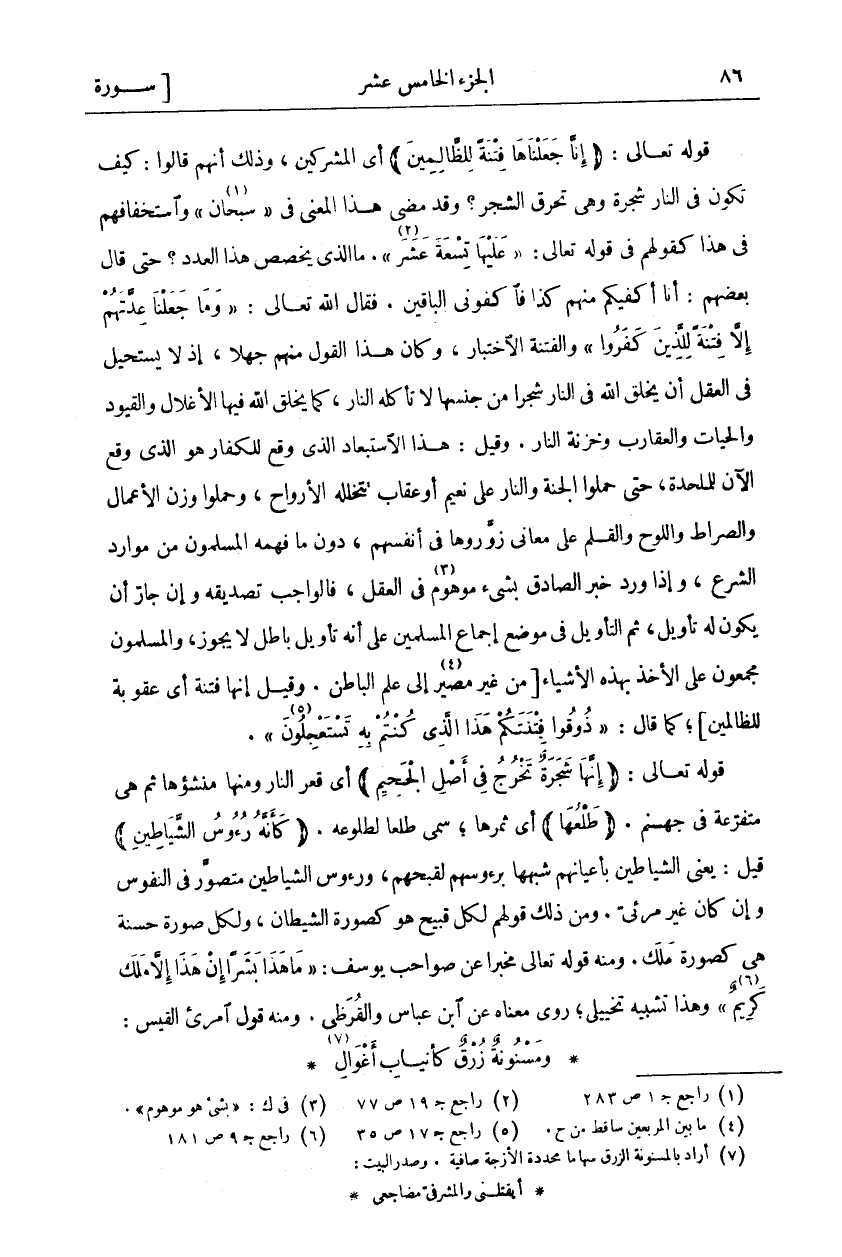 ٨٦ الجزء الخامس عشر [ ســـورة
قوله تعـالى : ﴿ إِنَّا جَعَلْنَاهَا فِتْنَةً لِلظَّالِمِينَ ﴾ أى المشركين ، وذلك أنهم قالوا : كيف
تكون فى النار شجرة وهى تحرق الشجر ؟ وقد مضى هـذا المعنى فى « سبحان (١) » وٱستخفافهم
فى هذا كقولهم فى قوله تعالى : « عَلَيْهَا تِسْعَةَ عَشَرَ (٢) » . ماالذى يخصص هذا العدد ؟ حتى قال
بعضهم : أنا أكفيكم منهم كذا فٱكفونى الباقين . فقال الله تعـالى : « وَمَا جَعَلْنَا عِدَّتَهُمْ
إِلَّا فِتْنَةً لِلَّذِينَ كَفَرُوا » والفتنة الٱختبار ، وكان هـذا القول منهم جهلا ، إذ لا يستحيل
فى العقل أن يخلق الله فى النار شجرا من جنسها لا تأكله النار ، كما يخلق الله فيها الأغلال والقيود
والحيات والعقارب وخزنة النار . وقيل : هـذا الٱستبعاد الذى وقع للكفار هو الذى وقع
الآن للملحدة ، حتى حملوا الجنة والنار على نعيم أو عقاب تتخلله الأرواح ، وحملوا وزن الأعمال
والصراط واللوح والقـلم على معانى زوَّروها فى أنفسهم ، دون ما فهمه المسلمون من موارد
الشرع ، وإذا ورد خبر الصادق بشىء موهوم (٣) فى العقل ، فالواجب تصديقه وإن جاز أن
يكون له تأويل ، ثم التأويل فى موضع إجماع المسلمين على أنه تأويل باطل لا يجوز ، والمسلمون
مجمعون على الأخذ بهذه الأشياء [ من غير مصير (٤) إلى علم الباطن . وقيـل إنها فتنة أى عقوبة
للظالمين ] ؛ كما قال : « ذُوقُوا فِتْنَتَكُمْ هَذَا الَّذِى كُنْتُمْ بِهِ تَسْتَعْجِلُونَ (٥) » .
قوله تعـالى : ﴿ إِنَّهَا شَجَرَةٌ تَخْرُجُ فِى أَصْلِ الْجَحِيمِ ﴾ أى قعر النار ومنها منشؤها ثم هى
متفرّعة فى جهنم . ﴿ طَلْعُهَا ﴾ أى ثمرها ؛ سمى طلعا لطلوعه . ﴿ كَأَنَّهُ رُءُوسُ الشَّيَاطِينِ ﴾
قيل : يعنى الشياطين بأعيانهم شبهها برءوسهم لقبحهم ، ورءوس الشياطين متصوَّر فى النفوس
وإن كان غير مرئىّ . ومن ذلك قولهم لكل قبيح هو كصورة الشيطان ، ولكل صورة حسنة
هى كصورة مَلَك . ومنه قوله تعالى مخبرا عن صواحب يوسف : « مَا هَذَا بَشَرًا إِنْ هَذَا إِلَّا مَلَكٌ
كَرِيمٌ (٦) » وهذا تشبيه تخييلى ؛ روى معناه عن ٱبن عباس والقُرَظى . ومنه قول ٱمرئ القيس :
* وَمَسْنُونَةٌ زُرْقٌ كأنيـاب أَغْوَالِ (٧) *
(١) راجع جـ ١ ص ٢٨٣ (٢) راجع جـ ١٩ ص ٧٧ (٣) فى ك : « بشئ هو موهوم » .
(٤) ما بين المربعين ساقط من ح . (٥) راجع جـ ١٧ ص ٣٥ (٦) راجع جـ ٩ ص ١٨١
(٧) أراد بالمسنونة الزرق سهاما محددة الأزجة صافية . وصدر البيت :
* أيقتلـنى والمشرفىّ مضاجعى *